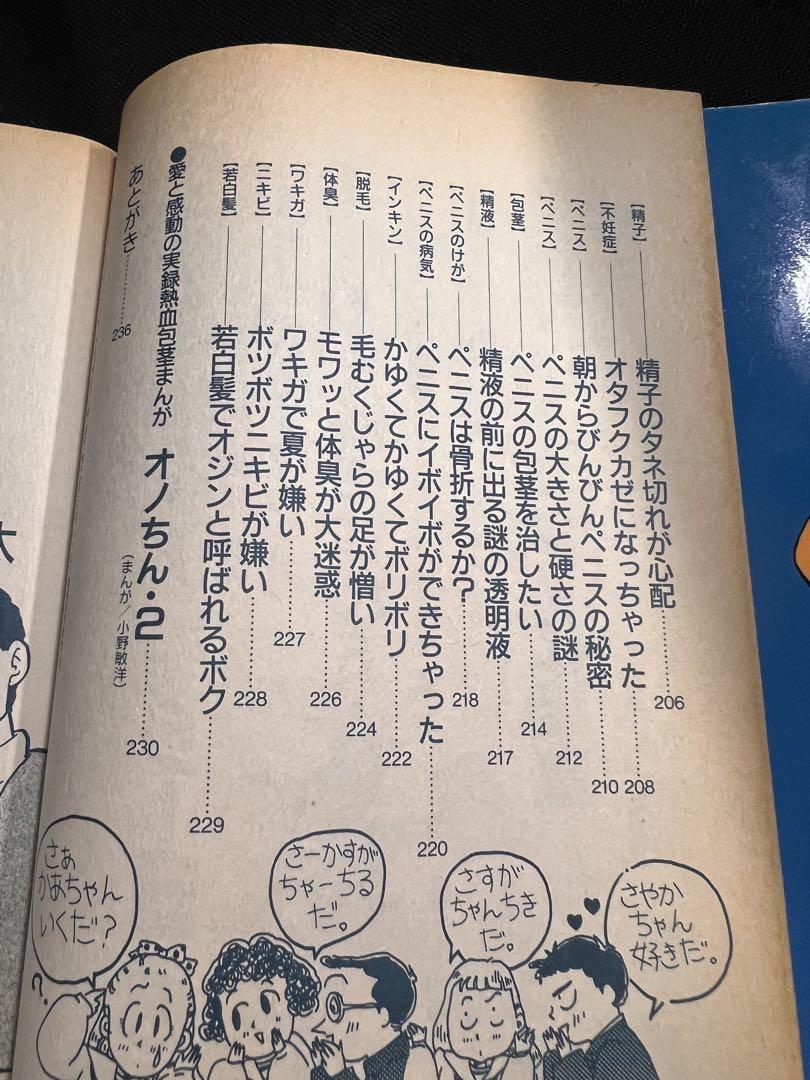 【精子】精子のタネ切れが心配…………206
【不妊症】オタフクカゼになっちゃった…………208
【ペニス】朝からびんびんペニスの秘密…………210
【ペニス】ペニスの大きさと硬さの謎…………212
【包茎】ペニスの包茎を治したい…………214
【精液】精液の前に出る謎の透明液…………217
【ペニスのけが】ペニスは骨折するか?…………218
【ペニスの病気】ペニスにイボイボができちゃった…………220
【インキン】かゆくてかゆくてボリボリ…………222
【脱毛】毛むくじゃらの足が憎い…………224
【体臭】モワッと体臭が大迷惑…………226
【ワキガ】ワキガで夏が嫌い…………227
【ニキビ】ボツボツニキビが嫌い…………228
【若白髪】若白髪でオジンと呼ばれるボク…………229
●愛と感動の実録熱血包茎まんが オノちん・2…………230
(まんが/小野敏洋)
あとがき…………236
さやか
ちゃん
好きだ。
さすが
ちゃんちき
だ。
さーかすが
ちゃーちる
だ。
さぁ
かあちゃん
いくだ?
?
太